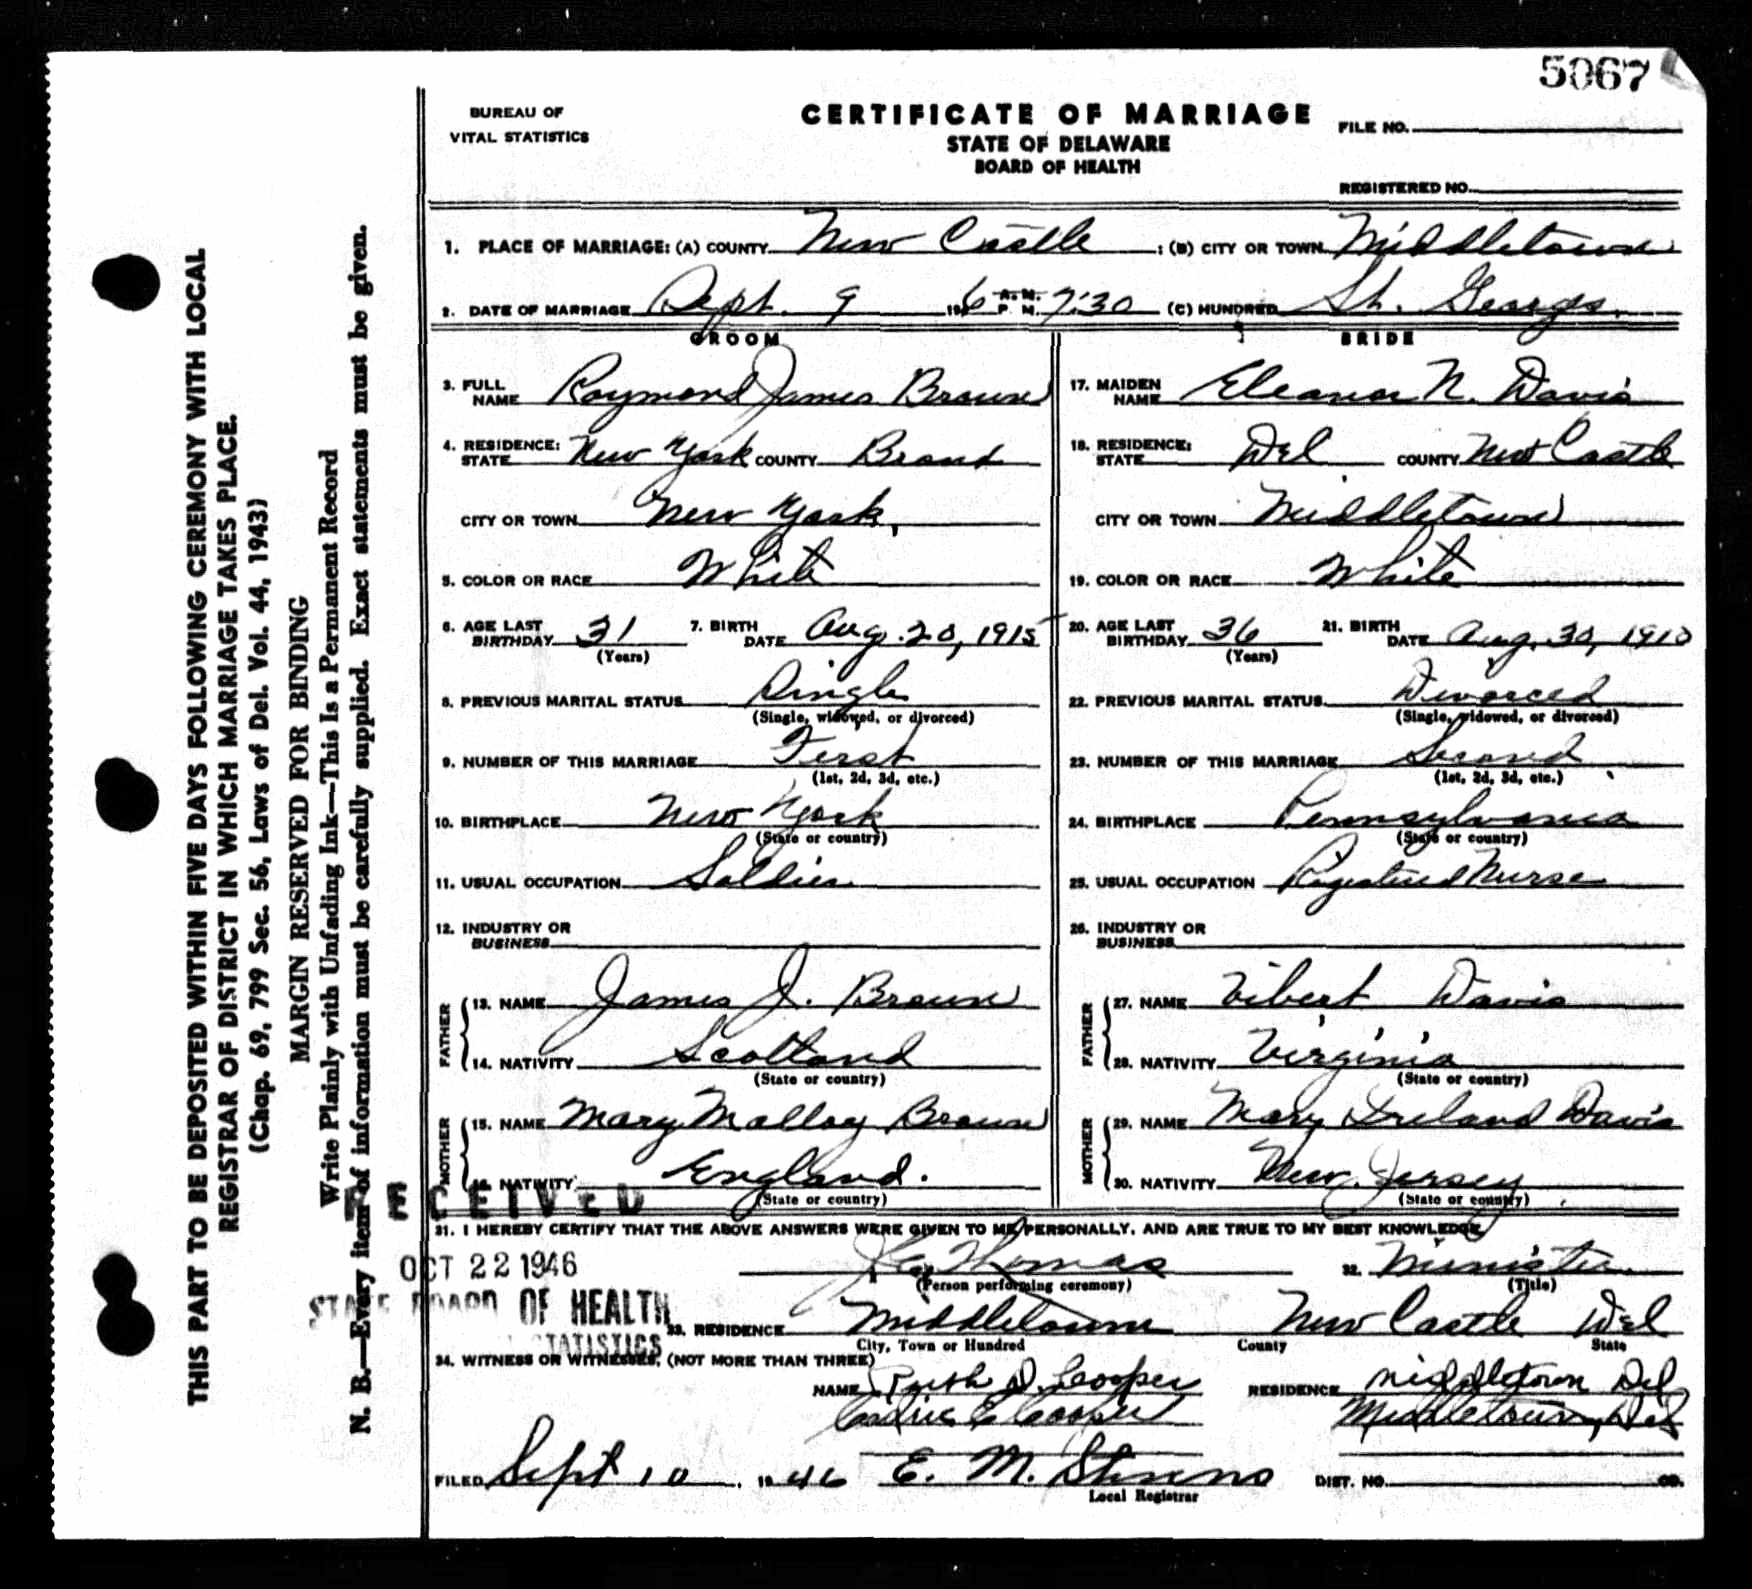 5067
BUREAU OF
VITAL STATISTICS
CERTIFICATE OF MARRIAGE
STATE OF DELAWARE
BOARD OF HEALTH
FILE NO.
REGISTERED NO.
1. PLACE OF MARRIAGE: (A) COUNTY New Castle : (B) CITY OR TOWN Middletown
2. DATE OF MARRIAGE Sept. 9 1946 A.M. P.M. 7:30 (C) HUNDRED St. Georges.
GROOM
3. FULL NAME Raymond James Brown
4. RESIDENCE: STATE New York COUNTY
CITY OR TOWN New York,
5. COLOR OR RACE White
6. AGE LAST BIRTHDAY 31 7. BIRTH DATE Aug. 20, 1915
(Years)
8. PREVIOUS MARITAL STATUS Single
(Single, widowed, or divorced)
9. NUMBER OF THIS MARRIAGE First
(1st, 2d, 3d, etc.)
10. BIRTHPLACE New York
(State or country)
11. USUAL OCCUPATION Soldier
12. INDUSTRY OR BUSINESS
FATHER
13. NAME James J. Brown
14. NATIVITY Scotland
(State or country)
MOTHER
15. NAME Mary Malloy Brown
16. NATIVITY England.
(State or country)
BRIDE
17. MAIDEN NAME Eleanor N. Davis
18. RESIDENCE: STATE Del COUNTY New Castle
CITY OR TOWN Middletown
19. COLOR OR RACE White
20. AGE LAST BIRTHDAY 36 21. BIRTH DATE Aug. 30, 1910
(Years)
22. PREVIOUS MARITAL STATUS Divorced
(Single, widowed, or divorced)
23. NUMBER OF THIS MARRIAGE Second
(1st, 2d, 3d, etc.)
24. BIRTHPLACE Pennsylvania
(State or country)
25. USUAL OCCUPATION Registered Nurse
26. INDUSTRY OR BUSINESS
FATHER
27. NAME Vibert Davis
28. NATIVITY Virginia
(State or country)
MOTHER
29. NAME Mary Ireland Davis
30. NATIVITY New Jersey
(State or country)
31. I HEREBY CERTIFY THAT THE ABOVE ANSWERS WERE GIVEN TO ME PERSONALLY, AND ARE TRUE TO MY BEST KNOWLEDGE
Thomas 32. Minister
(Person performing ceremony) (Title)
33. RESIDENCE Middletown New Castle Del
City, Town or Hundred County State
34. WITNESS OR WITNESSES, (NOT MORE THAN THREE)
NAME Ruth D. Cooper RESIDENCE Middletown Del
Cooper Middletown, Del
FILED Sept 10, 1946 E. M. Stevens DIST. NO. CO.
Local Registrar
RECEIVED
OCT 22 1946
STATE BOARD OF HEALTH
STATISTICS
THIS PART TO BE DEPOSITED WITHIN FIVE DAYS FOLLOWING CEREMONY WITH LOCAL
REGISTRAR OF DISTRICT IN WHICH MARRIAGE TAKES PLACE.
(Chap. 69, 799 Sec. 56, Laws of Del. Vol. 44, 1943)
MARGIN RESERVED FOR BINDING
Write Plainly with Unfading Ink—This Is a Permanent Record
N. B.—Every item of information must be carefully supplied. Exact statements must be given.